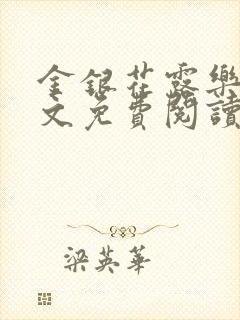 金銀花露樂
文免費閱讀
梁英華